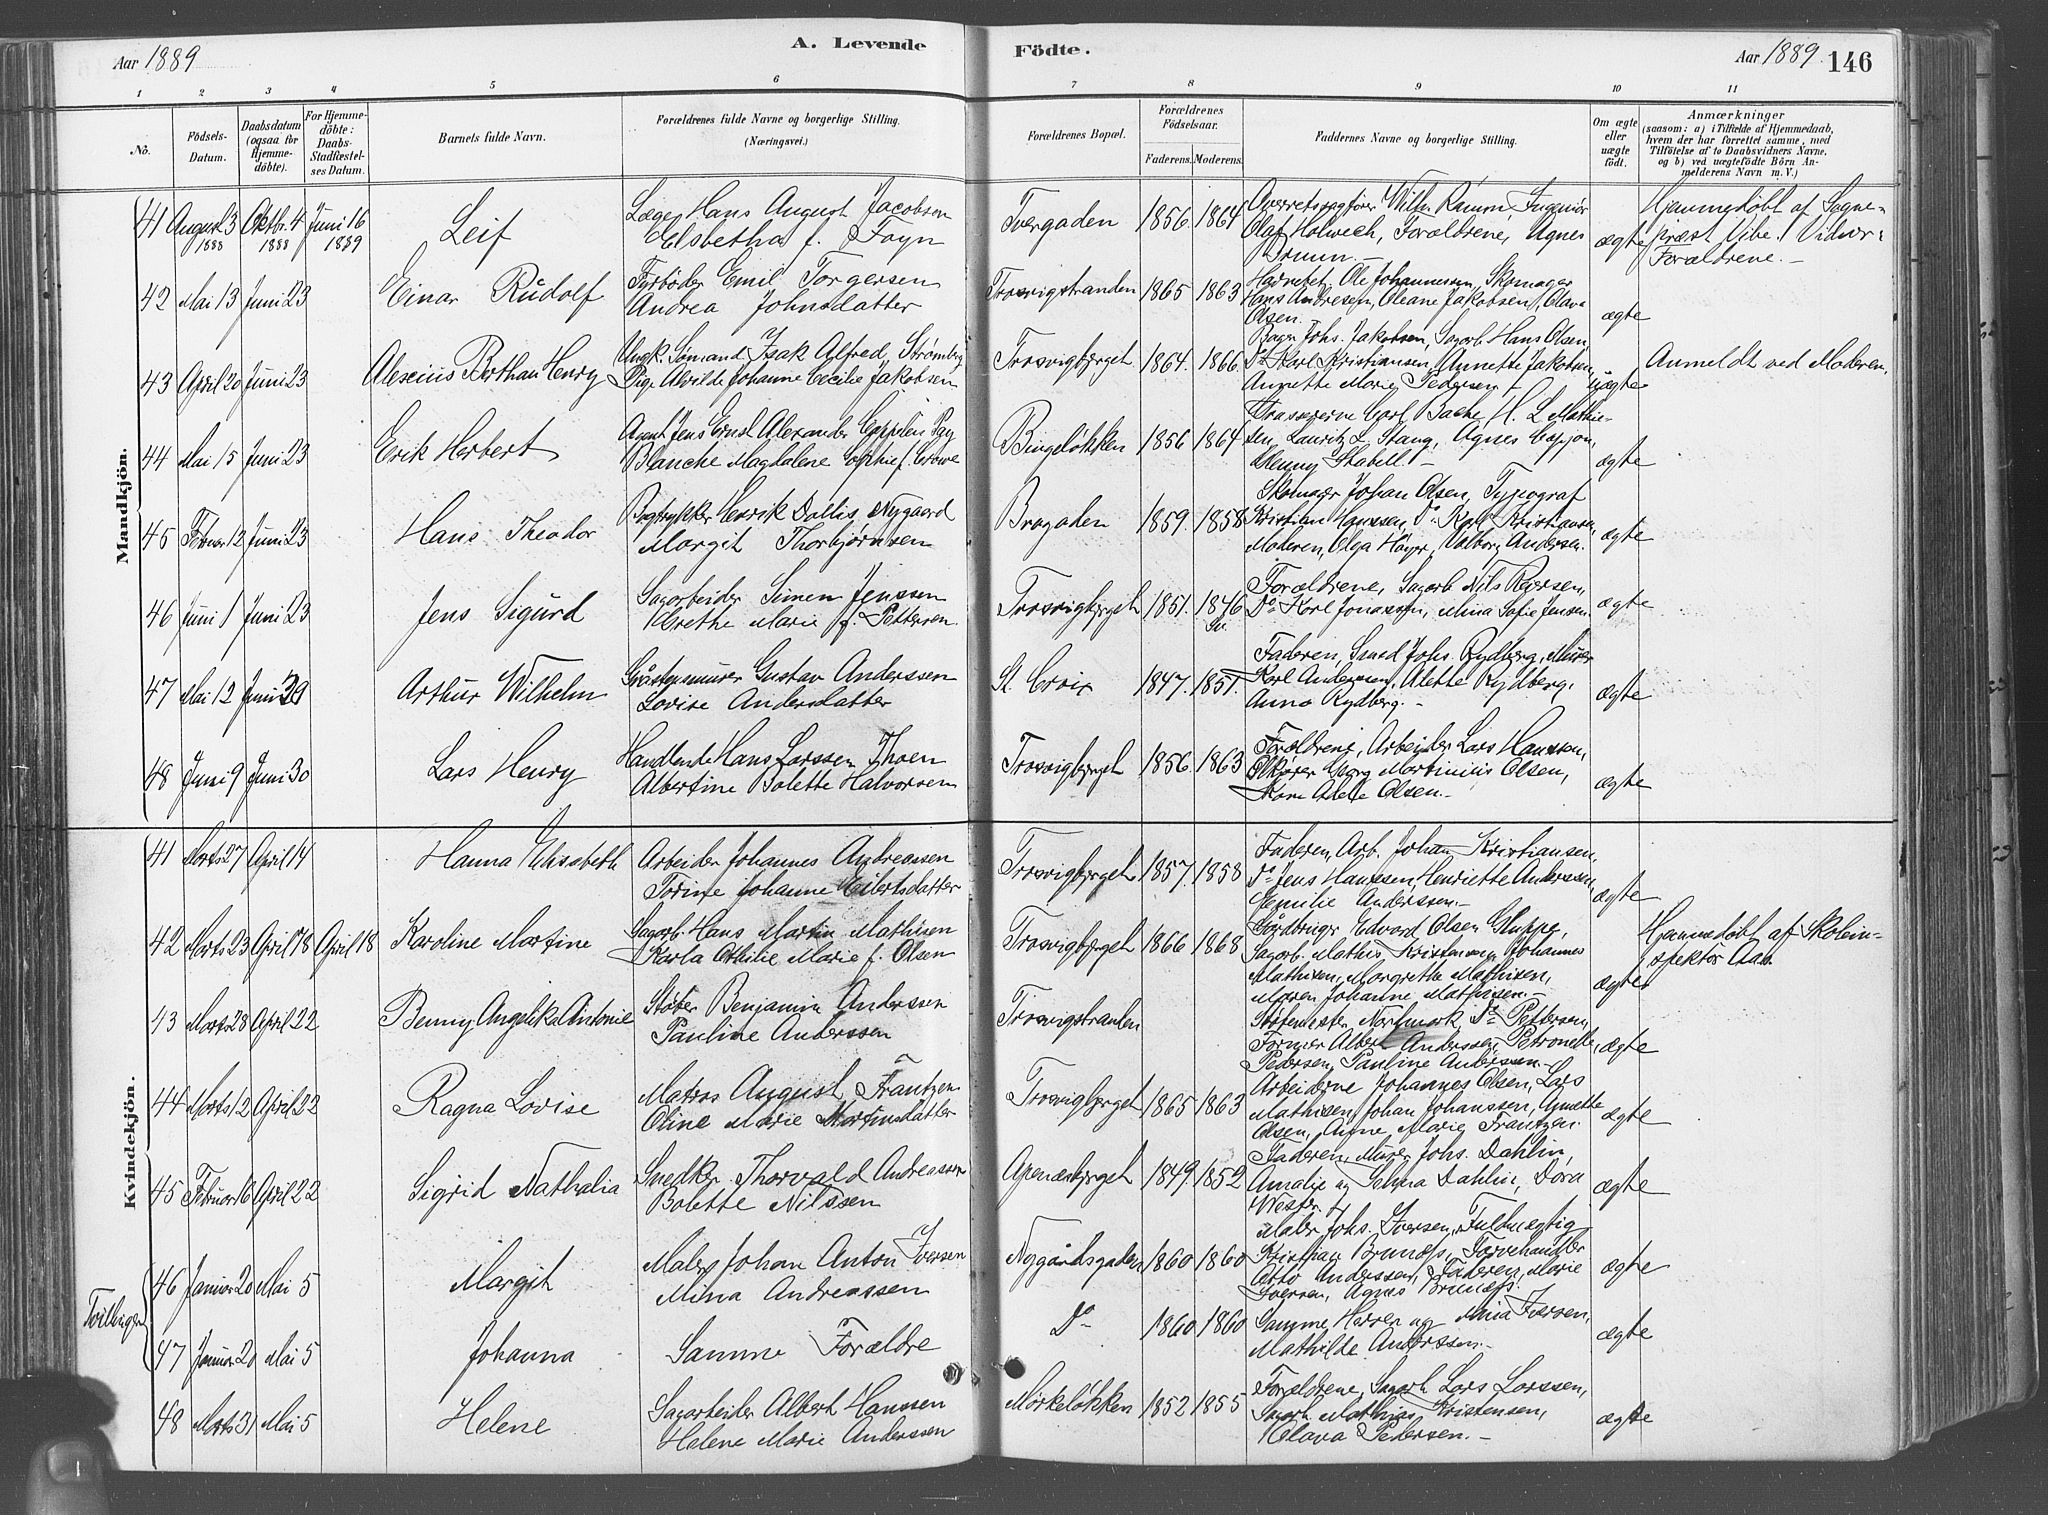 Aar 1889
A. Levende
Födte.
Aar 1889.
146
1 2 3 4 5 6 7 8 9 10 11
No.
Födsels-Datum.
Daabsdatum (ogsaa for Hjemme-döbte).
For Hjemme-döbte: Daabs-Stadfæstel-ses Datum.
Barnets fulde Navn.
Forældrenes fulde Navne og borgerlige Stilling.
(Næringsvei.)
Forældrenes Bopæl.
Forældrenes Födselsaar.
Faderens. Moderens.
Faddernes Navne og borgerlige Stilling.
Om ægte eller uægte födt.
Anmærkninger
(saasom: a) i Tilfælde af Hjemmedaab,
hvem der har forrettet samme, med
Tilföielse af to Daabsvidners Navne,
og b) ved uægtefödte Börn An-
melderens Navn m. V.)
Mandkjön.
41 August 3 1888 Oktbr. 4 1888 Juni 16 1889 Leif
Læge Hans August Jacobsen
Elsbetha f. Fayn
Tvergaden 1856. 1864
Overretssagfører Wilh. Ramm, Ingeniør
Olaf Holwech, Forældrene, Agnes
ægte
Hjemmedøbt af Sogne-
præst Vibe. Vidner:
Forældrene.
42 Mai 13 Juni 23 Einar Rudolf
Fyrbøder Emil Torgersen
Andrea Johnsdatter
Trosvigstranden 1865 1863
Ole Johannessen, Skomager
Hans Andresen, Oleane Jakobsen, Olava
Olsen.
ægte
43 April 20 Juni 23 Alexius Berthau Henry
Ungk. Sømand Isak Alfred Strømberg
Pige Alvilde Johanne Cecilie Jakobsen
Trosvigbjerget 1864. 1866.
Bager Johs. Jakobsen, Sagarb. Hans Olsen,
Do Karl Kristiansen, Annette Jakobsen,
Annette Marie Pedersen
uægte
Anmeldt ved Moderen.
44 Mai 15 Juni 23 Erik Herbert
Agent Jens Ernst Alexander Cappelen
Blanche Magdalene Sophie f. Crowe
Bingeløkken 1856 1864
Carl Bache, H. L. Mathie-
sen, Lauritz L. Stang, Agnes
Henny Stabell.
ægte
45 Februar 12 Juni 23 Hans Theodor
Bogtrykker Henrik Dallis Nygaard
Margit Thorbjørnsen
Brogaden 1859. 1858
Skomager Johan Olsen, Typograf
Kristian Hanssen, Do Karl Kristiansen,
Moderen, Olga Høyer, Valborg Andersen.
ægte
46 Juni 1 Juni 23 Jens Sigurd
Sagarbeider Simen Jenssen
Grethe Marie f. Pettersen
Trosvigbjerget 1851. 1846
Forældrene, Sagarb. Nils Reiersen,
Do Karl Jonassen, Mina Sofie Jensen.
ægte
47 Mai 12 Juni 29 Arthur Wilhelm
Gråstensmurer Gustav Anderssen
Lovise Andersdatter
St. Croix 1847. 1851.
Faderen, Smed Johs. Rydberg, Murer
Karl Anderssen, Alette Rydberg,
Anna Rydberg.
ægte
48 Juni 9 Juni 30 Lars Henry
Handlende Hans Larssen Thoen
Albertine Bolette Halvorsen
Trosvigbjerget 1856. 1863
Forældrene, Arbeider Lars Hanssen,
Georg Martinius Olsen,
Adele Olsen.
ægte
Kvindekjön.
41 Marts 27 April 14 Hanna Elisabeth
Arbeider Johannes Andreassen
Trine Johanne Eilertsdatter
Trosvigbjerget 1857. 1858
Faderen, Arb. Johan Kristiansen,
Do Jens Hanssen, Henriette Anderssen,
Emilie Anderssen.
ægte
42 Marts 23 April 18 April 18 Karoline Martine
Sagarb. Hans Martin Mathisen
Karla Othilie Marie f. Olsen
Trosvigbjerget 1866 1868
Gårdbruger Edvard Olsen Gluppe,
Sagarb. Mathis Kristensen, Johannes
Mathisen, Margrethe Mathisen,
Maren Johanne Mathisen.
ægte
Hjemmedøbt af Skolein-
spektør Aas.
43 Marts 28 April 22 Benny Angelika Antonie
Støber Benjamin Anderssen
Pauline Anderssen
Trosvigstranden
Støbemester Nordmark, Do Pettersen,
Former Albert Anderssen, Petronelle
Pedersen, Pauline Anderssen.
ægte
44 Marts 12 April 22 Ragna Lovise
Matros August Frantzen
Oline Marie Martinsdatter
Trosvigbjerget 1865 1863
Arbeiderne Johannes Olsen, Lars
Mathisen, Johan Johanssen, Annette
Olsen, Anne Marie Frantzen.
ægte
45 Februar 16 April 22 Sigrid Nathalia
Snedker Thorvald Andreassen
Bolette Nilssen
Apenæsbjerget 1849. 1852
Faderen, Murer Johs. Dahlin,
Amalie og Selma Dahlin, Dora
Wester.
ægte
Tvillinger
46 Januar 20 Mai 5 Margit
Maler Johan Anton Iversen
Mina Andreassen
Nygårdsgaden 1860 1860
Maler Johs. Iversen, Fuldmægtig
Kristian Brunæs, Farvehandler
Otto Anderssen, Faderen, Marie
Iversen, Agnes Brunæs.
ægte
47 Januar 20 Mai 5 Johanna
Samme Forældre
Do 1860 1860
Samme Herrer og Mina Iversen,
Mathilde Anderssen.
ægte
48 Marts 31 Mai 5 Helene
Sagarbeider Albert Hanssen
Helene Marie Anderssen
Mørkeløkken 1852 1855
Forældrene, Sagarb. Lars Larssen,
Sagarb. Mathias Kristensen,
Olava Pedersen.
ægte